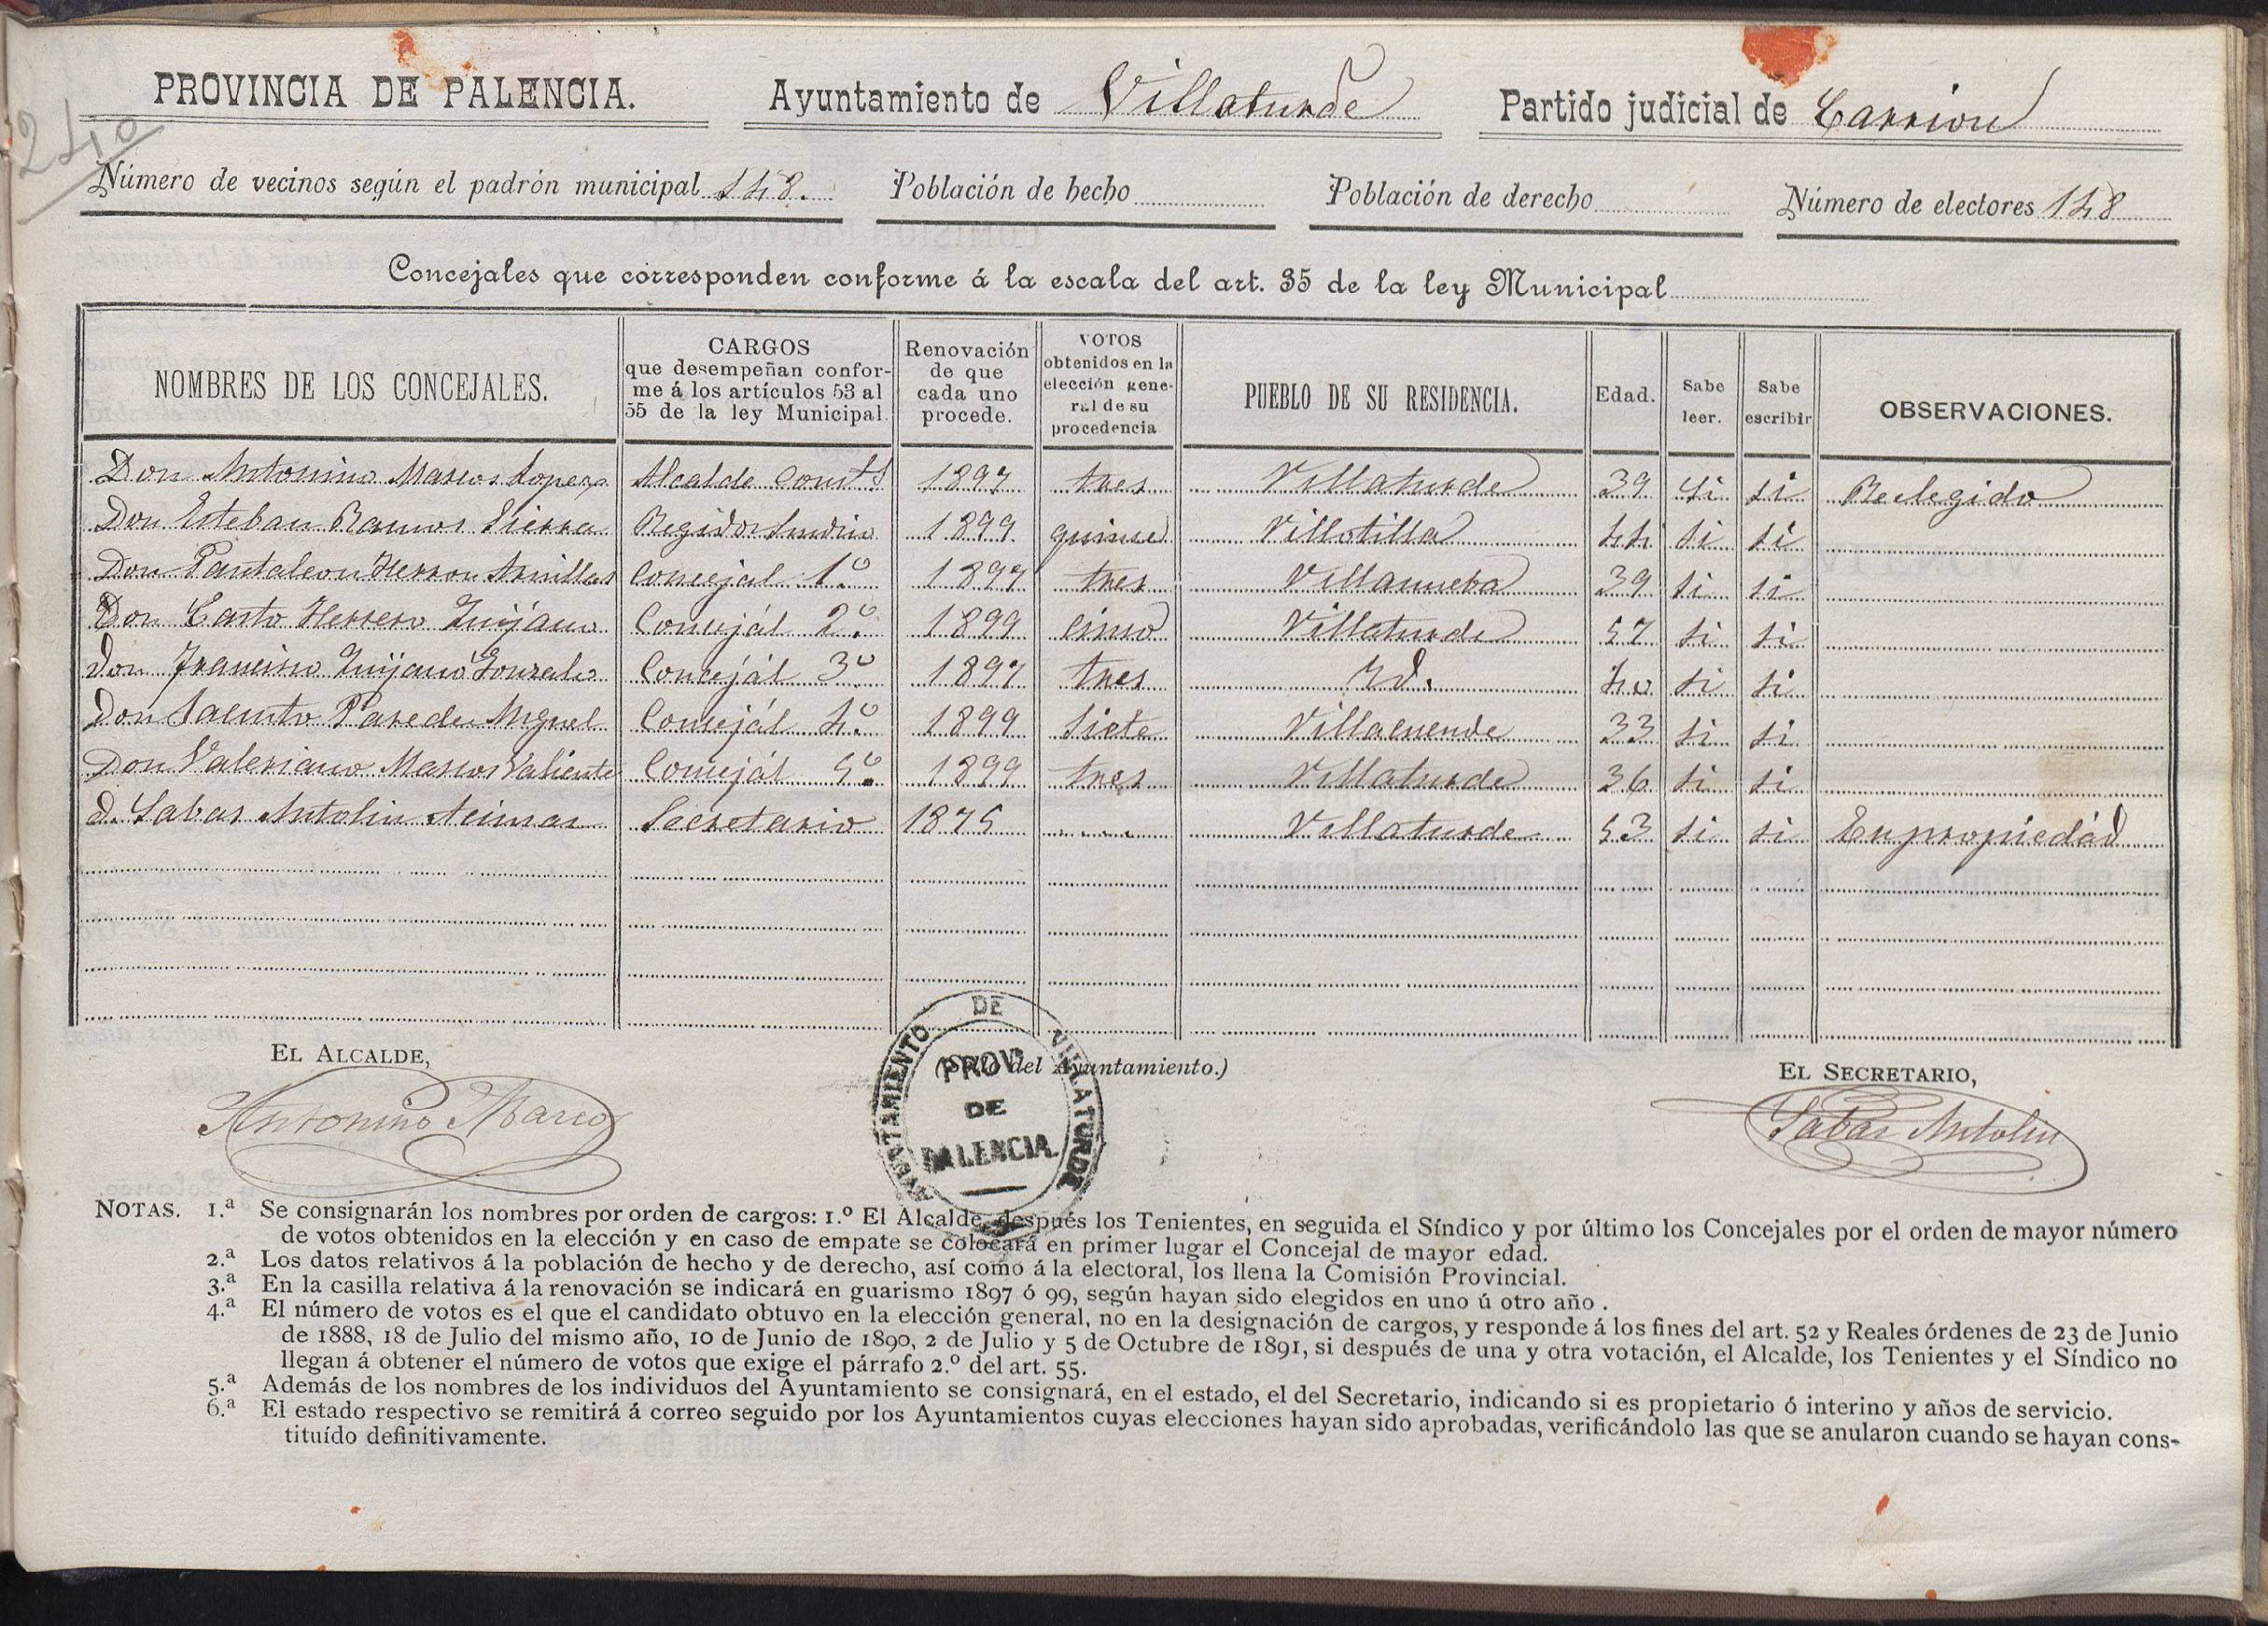 240
PROVINCIA DE PALENCIA. Ayuntamiento de Villaturde Partido judicial de Carrion
Número de vecinos según el padrón municipal 148. Población de hecho Población de derecho Número de electores 148
Concejales que corresponden conforme á la escala del art. 35 de la ley Municipal
NOMBRES DE LOS CONCEJALES.
CARGOS
que desempeñan confor-
me á los artículos 53 al
55 de la ley Municipal.
Renovación
de que
cada uno
procede.
VOTOS
obtenidos en la
elección gene-
ral de su
procedencia
PUEBLO DE SU RESIDENCIA.
Edad.
Sabe
leer.
Sabe
escribir
OBSERVACIONES.
Don Antonino Marcos Lopez Alcalde Const.l 1897 tres Villaturde 39 si si Reelegido
Don Esteban Ramos Sierra Regidor Sindico 1899 quinse Villotilla 44 si si
Don Pantaleon Herrou Arnillas Concejal 1.º 1897 tres Villanueba 39 si si
Don Casto Herrero Quijano Concejál 2.º 1899 cinco Villaturde 57 si si
Don Francisco Quijano Gonzalez Concejál 3.º 1897 tres Id. 40 si si
Don Jacinto Paredes Miguel Concejál 4.º 1899 siete Villacuende 33 si si
Don Valeriano Marcos Valiente Concejál 5.º 1899 tres Villaturde 36 si si
d. Sabas Antolin Secretario 1875 Villaturde 53 si si En propiedád
EL ALCALDE, (Sello del Ayuntamiento.) EL SECRETARIO,
Antonino Marcos
Sabas Antolin
AYUNTAMIENTO DE VILLATURDE
PROV.
DE
PALENCIA.
NOTAS. 1.ª Se consignarán los nombres por orden de cargos: 1.º El Alcalde, después los Tenientes, en seguida el Síndico y por último los Concejales por el orden de mayor número
de votos obtenidos en la elección y en caso de empate se colocará en primer lugar el Concejal de mayor edad.
2.ª Los datos relativos á la población de hecho y de derecho, así como á la electoral, los llena la Comisión Provincial.
3.ª En la casilla relativa á la renovación se indicará en guarismo 1897 ó 99, según hayan sido elegidos en uno ú otro año .
4.ª El número de votos es el que el candidato obtuvo en la elección general, no en la designación de cargos, y responde á los fines del art. 52 y Reales órdenes de 23 de Junio
de 1888, 18 de Julio del mismo año, 10 de Junio de 1890, 2 de Julio y 5 de Octubre de 1891, si después de una y otra votación, el Alcalde, los Tenientes y el Síndico no
llegan á obtener el número de votos que exige el párrafo 2.º del art. 55.
5.ª Además de los nombres de los individuos del Ayuntamiento se consignará, en el estado, el del Secretario, indicando si es propietario ó interino y años de servicio.
6.ª El estado respectivo se remitirá á correo seguido por los Ayuntamientos cuyas elecciones hayan sido aprobadas, verificándolo las que se anularon cuando se hayan cons-
tituído definitivamente.